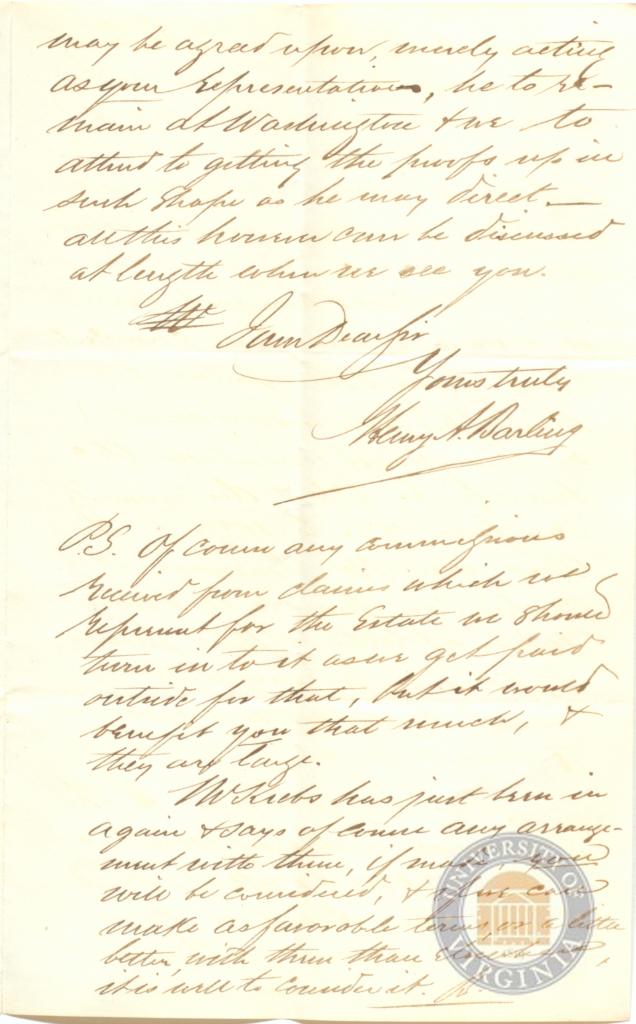 may be agread upon, merely acting
as your representatives, he to re-
main at Washington & we to
attend to getting the proofs up in
such shape as he may direct. —
all this however can be discussed
at length when we see you.
I am Dear Sir
Yours truly
Henry A. Darling
P.S. Of course any commissions
received from claims which we
represent for the Estate we should
turn in to it as we get paid
outside for that, but it would
benefit you that much, &
they are large.
Mr Krebs has just been in
again & says of course any arrange-
ment with them, if made
will be considered, & if we can
make as favorable terms, or a little
better, with them than elsewhere,
it is well to consider it.
UNIVERSITY OF VIRGINIA